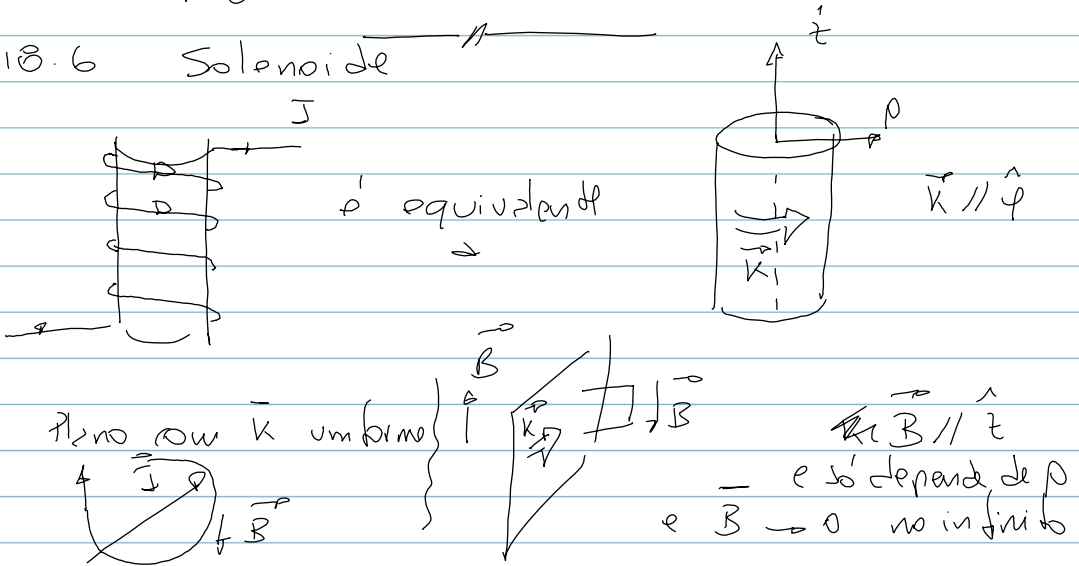 18.6 Solenoide
ẑ
J
ρ
é equivalente
a
K⃗ // φ̂
K⃗
B⃗
Plano com K̄ uniforme
K⃗
B⃗
B⃗ // ẑ
J⃗
e só depende de ρ
B⃗
e B̄ → 0 no infinito